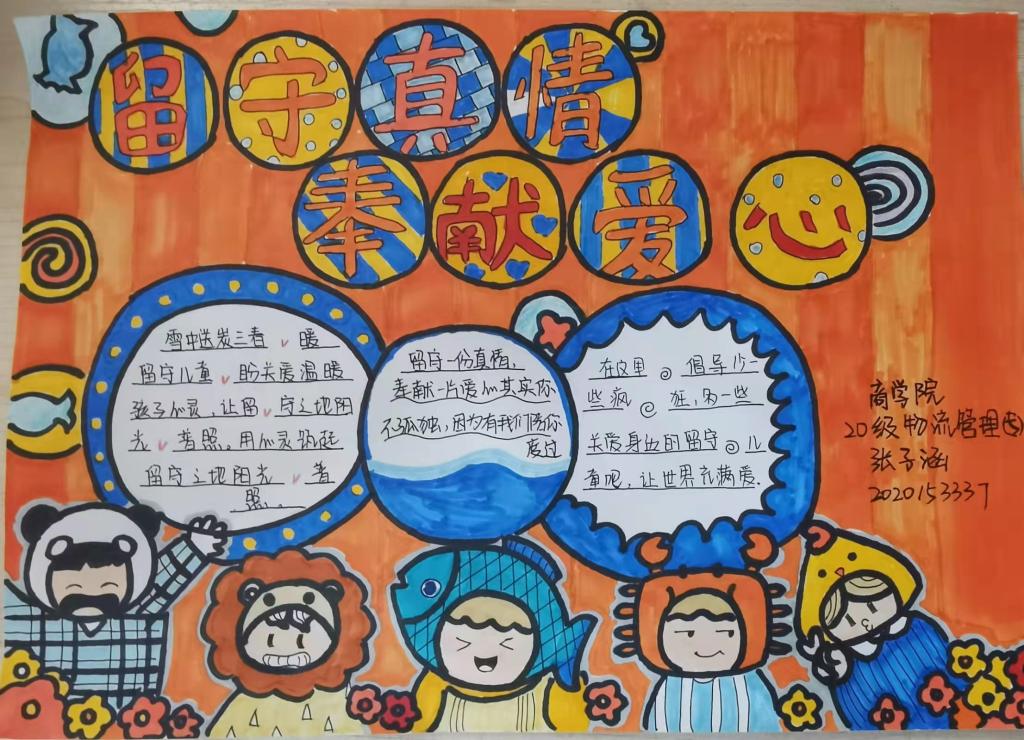 留守真情
奉献爱心
雪中送炭三春 暖
留守儿童 盼关爱温暖
孩子心灵,让留 守之地阳
光 普照。用心灵筑廷
留守之地阳光 普
照。
留守一份真情,
奉献一片爱心其实你
不孤独,因为有我们陪你
度过
在这里 倡导少一
些疯 狂,多一些
关爱身边的留守 儿
童吧,让世界充满爱.
商学院
20级物流管理
张子涵
2020153337